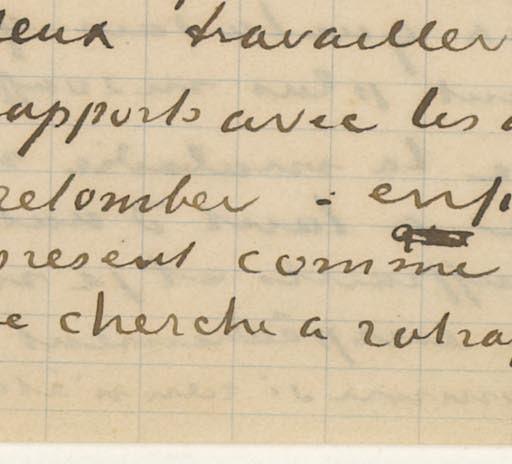 eux travailler
apports avec les
retomber - enf
present comme
e cherche a ratra